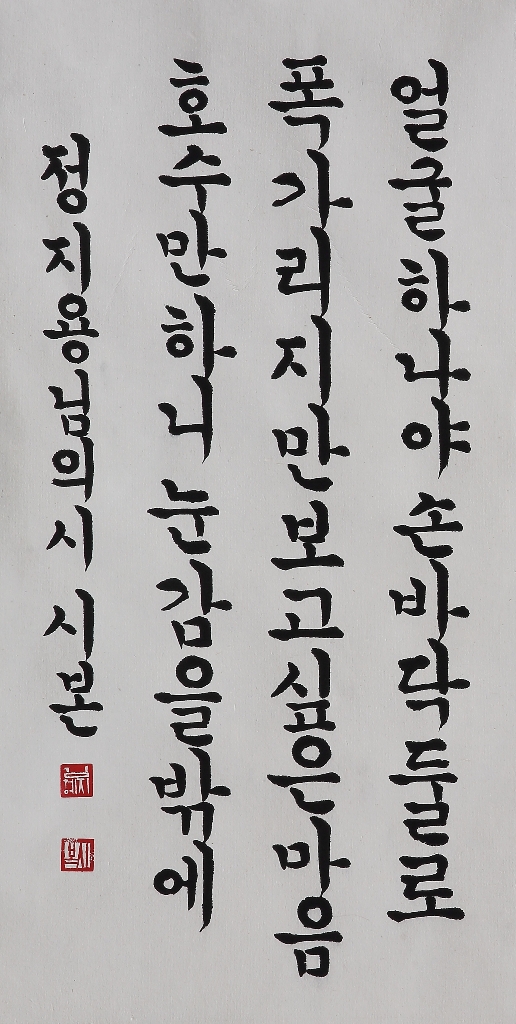 얼굴하나야 손바닥둘로
폭가리지만보고싶은마음
호수만하니 눈감을밖에
정지용님의시 시본